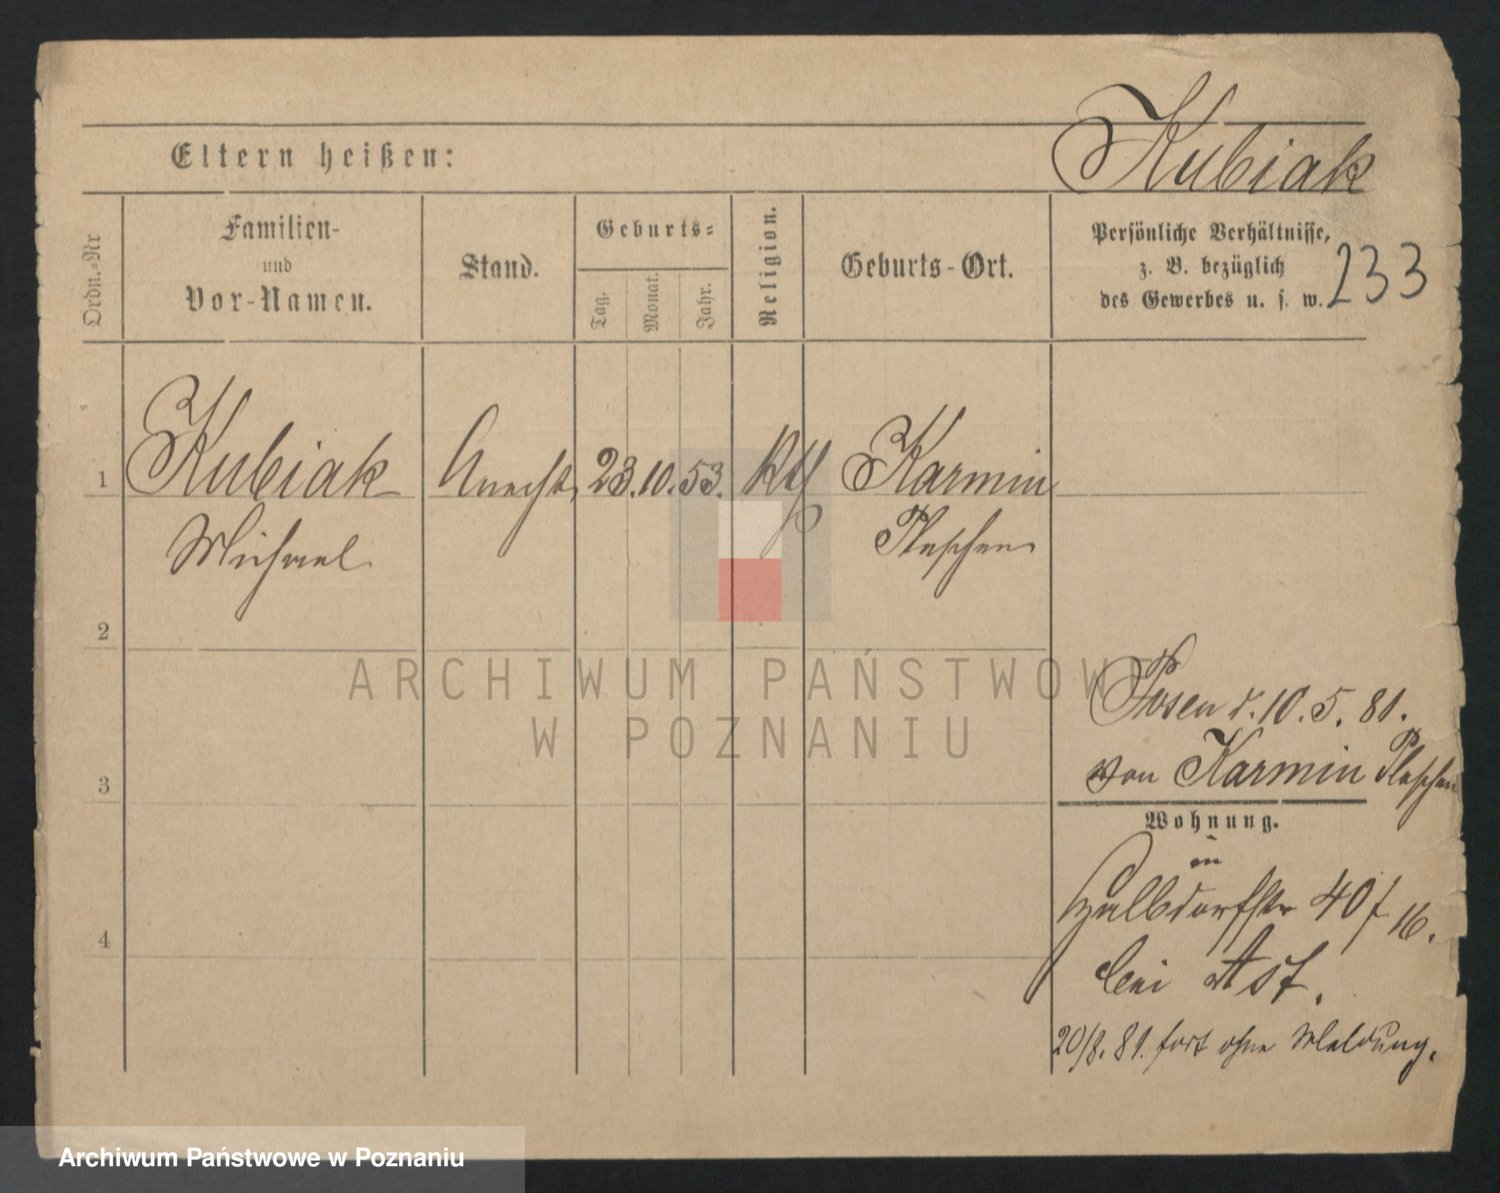 Kubiak
Eltern heißen:
233
Ordn.-Nr
Familien-
und
Vor-Namen.
Stand.
Geburts-
Tag.
Monat.
Jahr.
Religion.
Geburts-Ort.
Persönliche Verhältnisse,
z. B. bezüglich
des Gewerbes u. s. w.
1
Kubiak Knecht 23. 10. 53. Kth Karmin
Michael Pleschen
2
ARCHIWUM PAŃSTWOWE
W POZNANIU
Posen d. 10. 5. 81.
von Karmin Pleschen
3
Wohnung.
in
Halbdorfstr 40 / 16.
4
bei Ast.
20/8. 81. fort ohne Meldung.
Archiwum Państwowe w Poznaniu